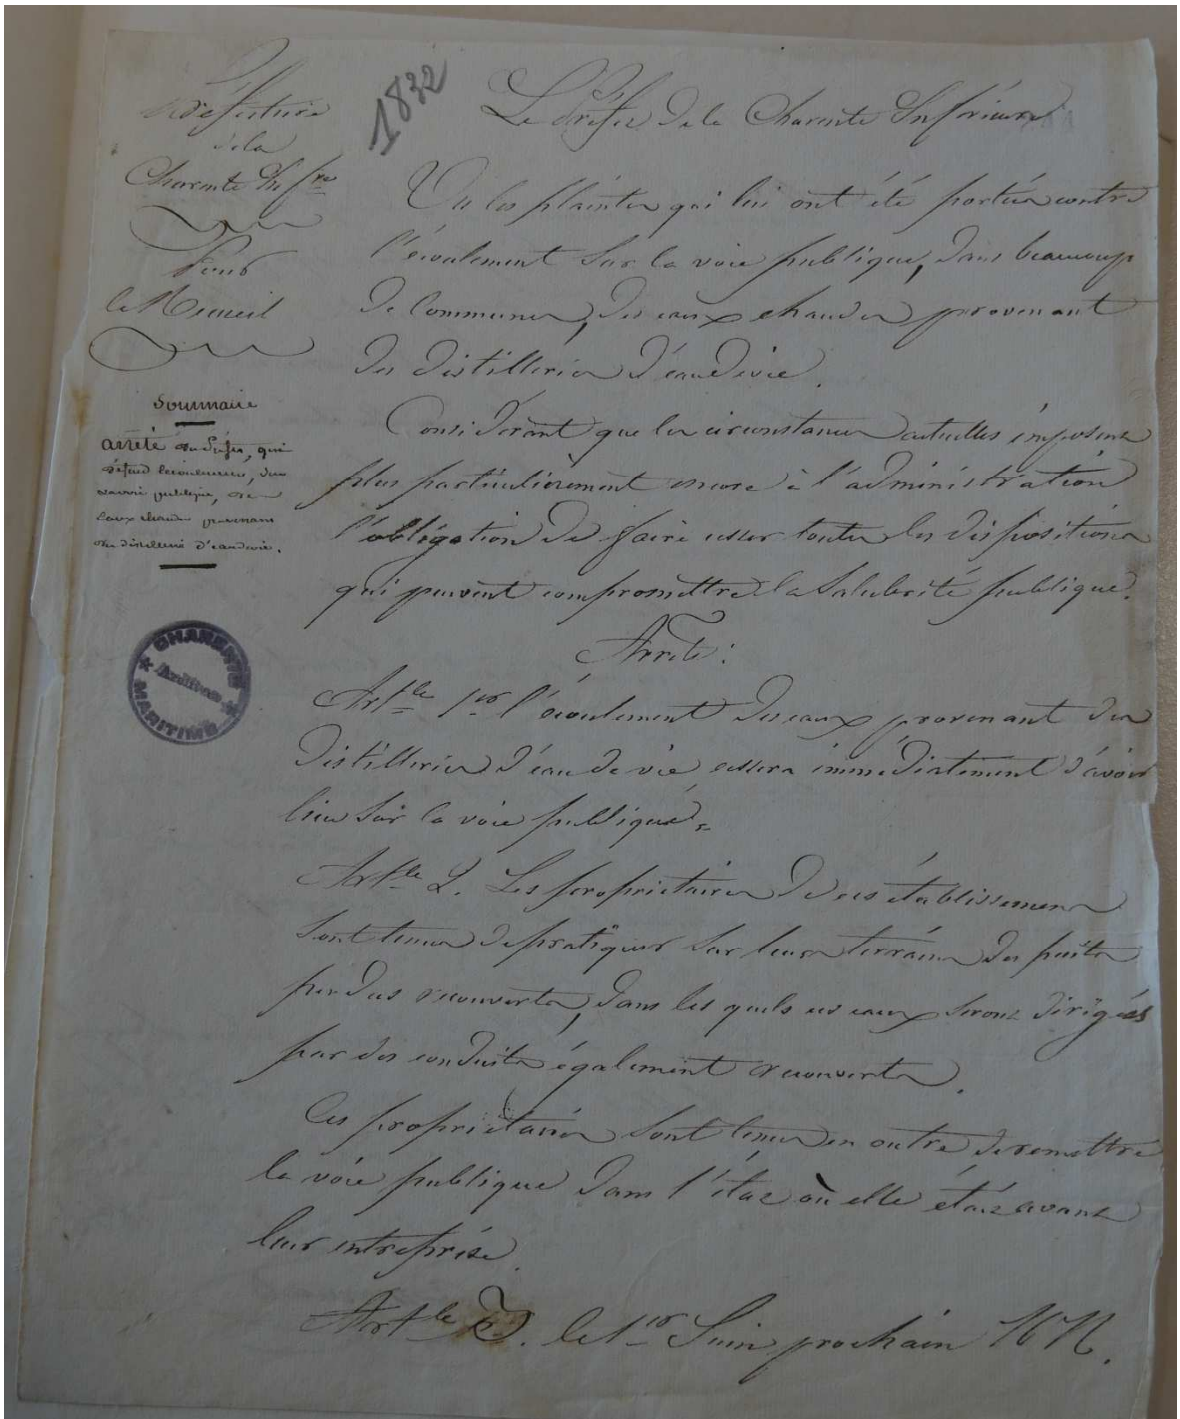 Préfecture
de la
Charente Inf.re
Pour
le Recueil
Sommaire
arrêté du Préfet, qui
défend l'écoulement, sur
la voie publique, des
eaux chaudes provenant
des distilleries d'eaudevie.
CHARENTE
Archives
MARITIME
1832
Le Préfet de la Charente Inférieure
Vu les plaintes qui lui ont été portées contre
l'écoulement sur la voie publique, dans beaucoup
de communes, des eaux chaudes provenant
des distilleries d'eaudevie.
Considérant que les circonstances actuelles imposent
plus particulièrement encore à l'administration
l'obligation de faire cesser toutes les dispositions
qui peuvent compromettre la salubrité publique.
Arrête:
Art.le 1.er l'écoulement des eaux provenant des
distilleries d'eau de vie cessera immédiatement d'avoir
lieu sur la voie publique.
Art.le 2. Les propriétaires de ces établissemens
sont tenus de pratiquer sur leurs terrains des puits
perdus recouverts, dans les quels ces eaux seront dirigées
par des conduits également recouverts.
Ces propriétaires sont tenus en outre de remettre
la voie publique dans l'état où elle était avant
leur entreprise.
Art.le 3. le 1.er Juin prochain MM.